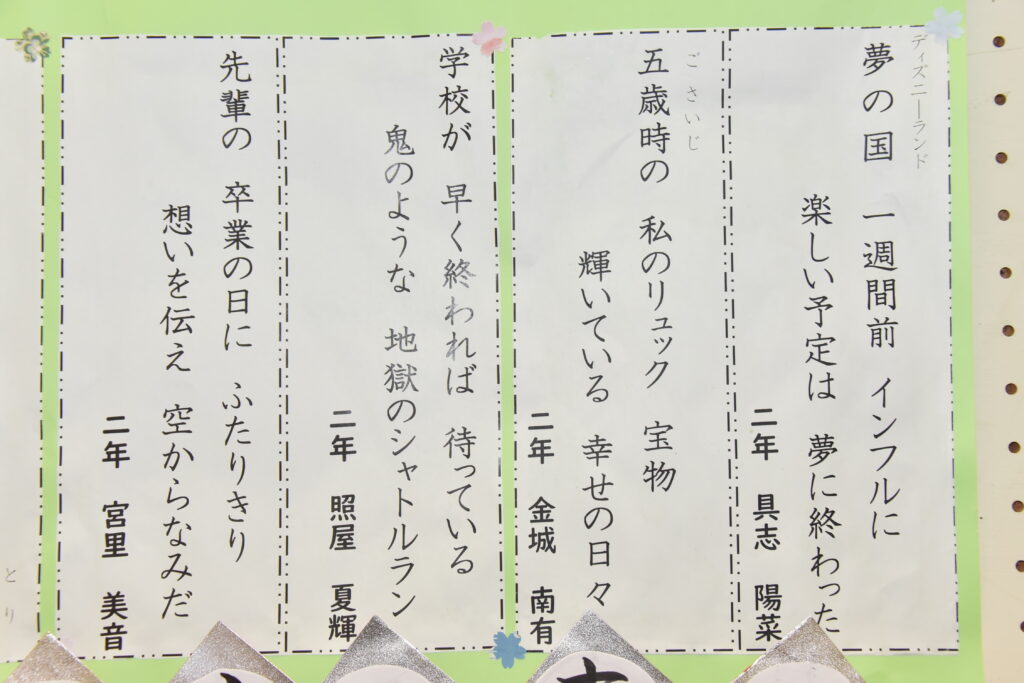 ディズニーランド
夢の国 一週間前 インフルに
楽しい予定は 夢に終わった
二年 具志 陽菜
ごさいじ
五歳時の 私のリュック 宝物
輝いている 幸せの日々
二年 金城 南有
学校が 早く終われば 待っている
鬼のような 地獄のシャトルラン
二年 照屋 夏輝
先輩の 卒業の日に ふたりきり
想いを伝え 空からなみだ
二年 宮里 美音
とり